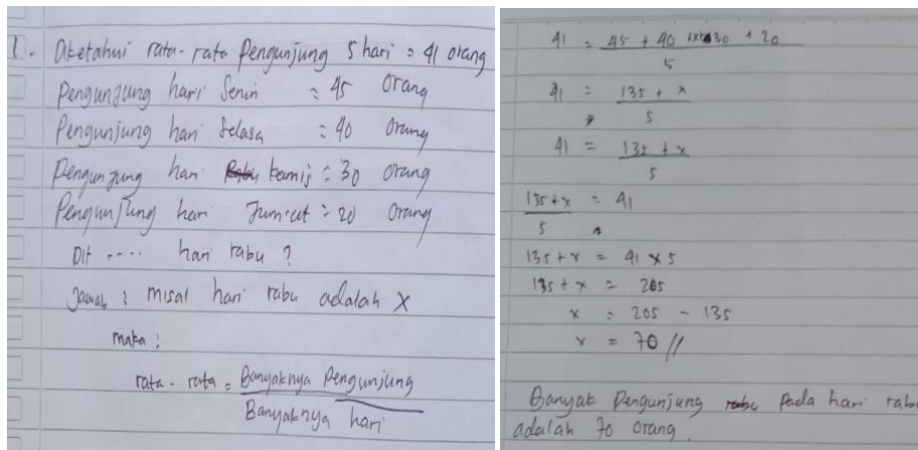 1. Diketahui rata-rata Pengunjung 5 hari = 41 orang
Pengunjung hari Senin = 45 orang
Pengunjung hari Selasa = 40 orang
Pengunjung hari kamis = 30 orang
Pengunjung hari Jum-at = 20 orang
Dit .... hari rabu ?
Jawab : misal hari rabu adalah x
maka :
rata-rata = Banyaknya Pengunjung
Banyaknya hari
41 = 45 + 40 +x+ 30 + 20
5
41 = 135 + x
5
41 = 135 + x
5
135 + x = 41
5
135 + x = 41 x 5
135 + x = 205
x = 205 - 135
x = 70 //
Banyak Pengunjung pada hari rabu
adalah 70 orang.